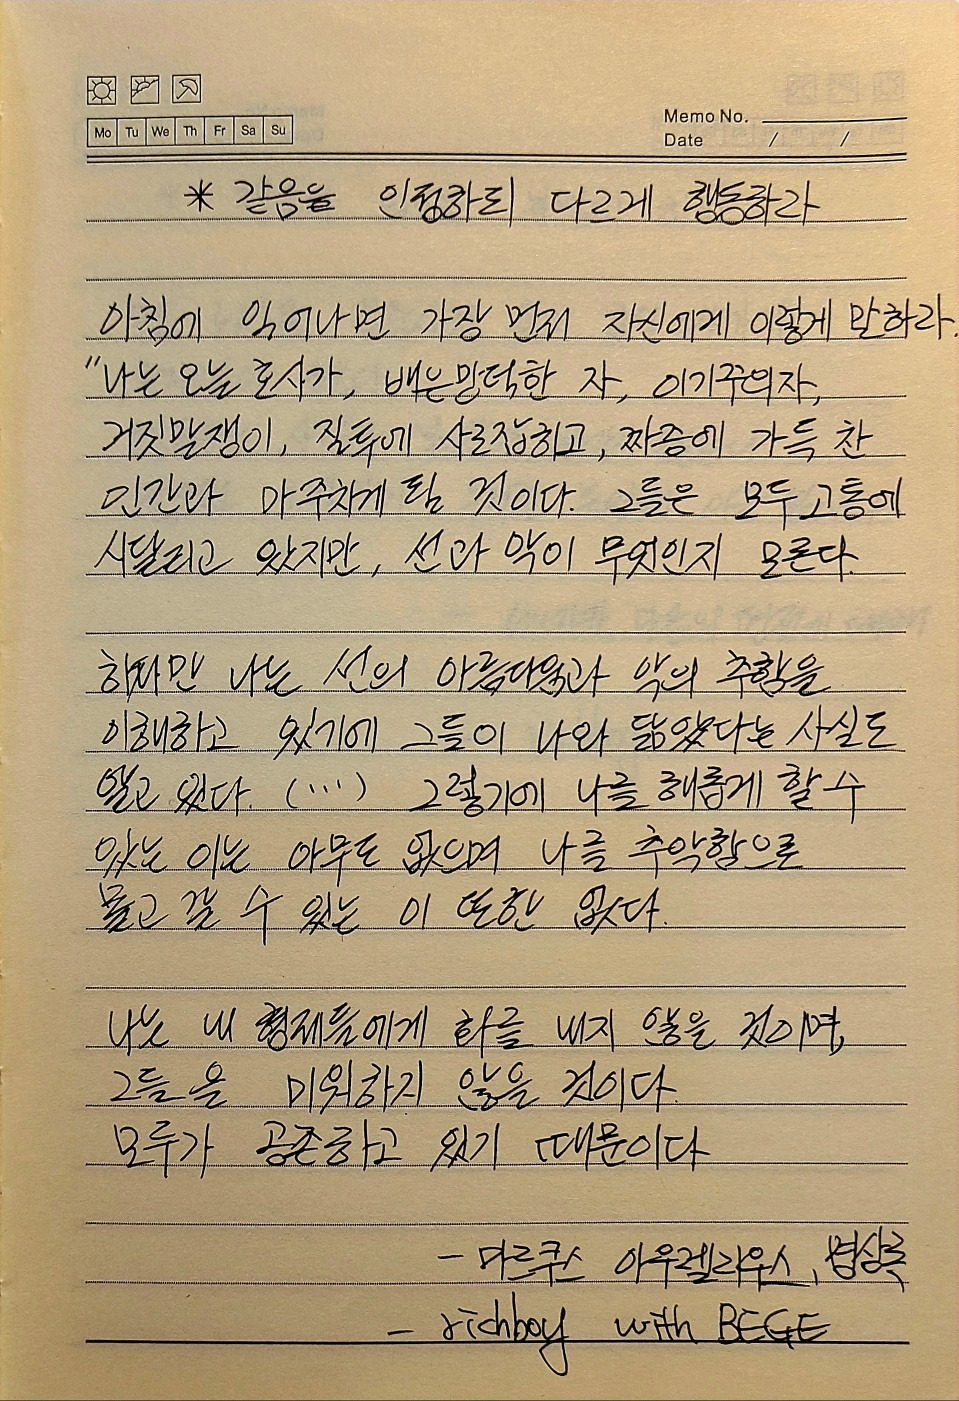 Mo Tu We Th Fr Sa Su
Memo No.
Date / /
* 같음을 인정하되 다르게 행동하라
아침에 일어나면 가장 먼저 자신에게 이렇게 말하라.
"나는 오늘 호사가, 배은망덕한 자, 이기주의자,
거짓말쟁이, 질투에 사로잡히고, 짜증에 가득 찬
인간과 마주치게 될 것이다. 그들은 모두 고통에
시달리고 있지만, 선과 악이 무엇인지 모른다.
하지만 나는 선의 아름다움과 악의 추함을
이해하고 있기에 그들이 나와 닮았다는 사실도
알고 있다. (···) 그렇기에 나를 해롭게 할 수
있는 이는 아무도 없으며 나를 추악함으로
몰고 갈 수 있는 이 또한 없다.
나는 내 형제들에게 화를 내지 않을 것이며,
그들을 미워하지 않을 것이다.
모두가 공존하고 있기 때문이다
- 마르쿠스 아우렐리우스, 명상록
- richboy with BEGE